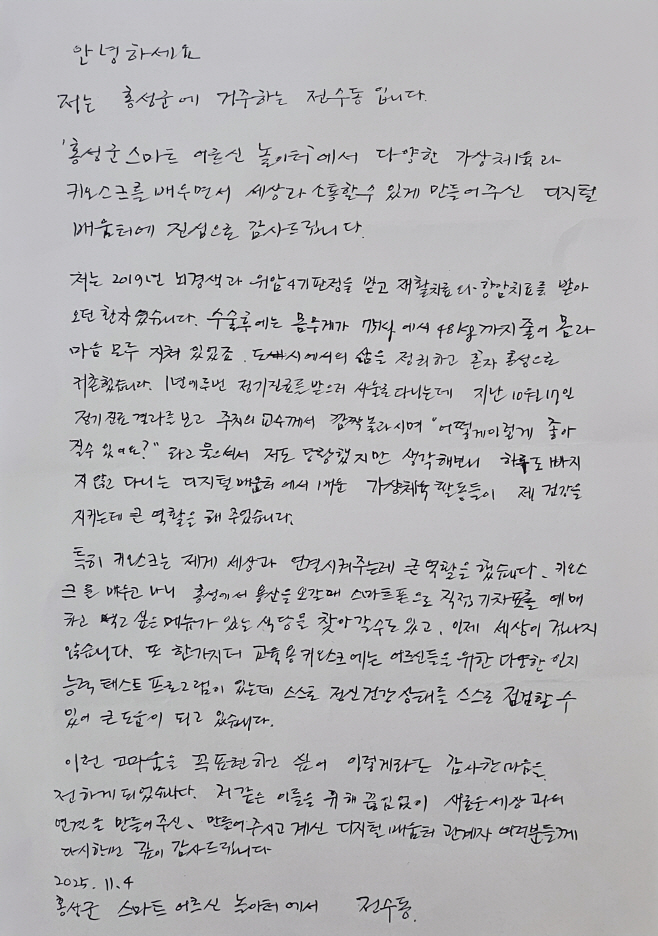 안녕하세요
저는 홍성군에 거주하는 전수동입니다.
'홍성군 스마트 어르신 놀이터'에서 다양한 가상체육과
키오스크를 배우면서 세상과 소통할 수 있게 만들어주신 디지털
배움터에 진심으로 감사드립니다.
저는 2019년 뇌경색과 위암4기판정을 받고 재활치료와 항암치료를 받아
오던 환자였습니다. 수술후에는 몸무게가 75kg에서 48kg까지 줄어 몸과
마음 모두 지쳐 있었죠. 도시에서의 삶을 정리하고 혼자 홍성으로
귀촌했습니다. 1년에 두번 정기진료를 받으러 서울로 다니는데 지난 10월17일
정기진료 결과를 보고 주치의 교수께서 깜짝 놀라시며 "어떻게 이렇게 좋아
질 수 있어요?" 라고 물으셔서 저도 당황했지만 생각해보니 하루도 빠지
지 않고 다니는 디지털 배움터에서 배운 가상체육 활동들이 제 건강을
지키는데 큰 역할을 해 주었습니다.
특히 키오스크는 제게 세상과 연결시켜주는데 큰 역할을 했습니다. 키오스
크를 배우고 나니 홍성에서 용산을 오갈때 스마트폰으로 직접 기차표를 예매
하고 먹고 싶은 메뉴가 있는 식당을 찾아갈수도 있고, 이제 세상이 겁나지
않습니다. 또 한가지 더 교육용 키오스크에는 어르신들을 위한 다양한 인지
능력 테스트 프로그램이 있는데 스스로 정신건강 상태를 스스로 점검할 수
있어 큰 도움이 되고 있습니다.
이런 고마움을 꼭 표현하고 싶어 이렇게라도 감사한 마음을
전하게 되었습니다. 저 같은 이들을 위해 끊임없이 새로운 세상과의
연결을 만들어주신, 만들어 주시고 계신 디지털 배움터 관계자 여러분들께
다시한번 깊이 감사드립니다
2025. 11. 4
홍성군 스마트 어르신 놀이터에서 전수동.